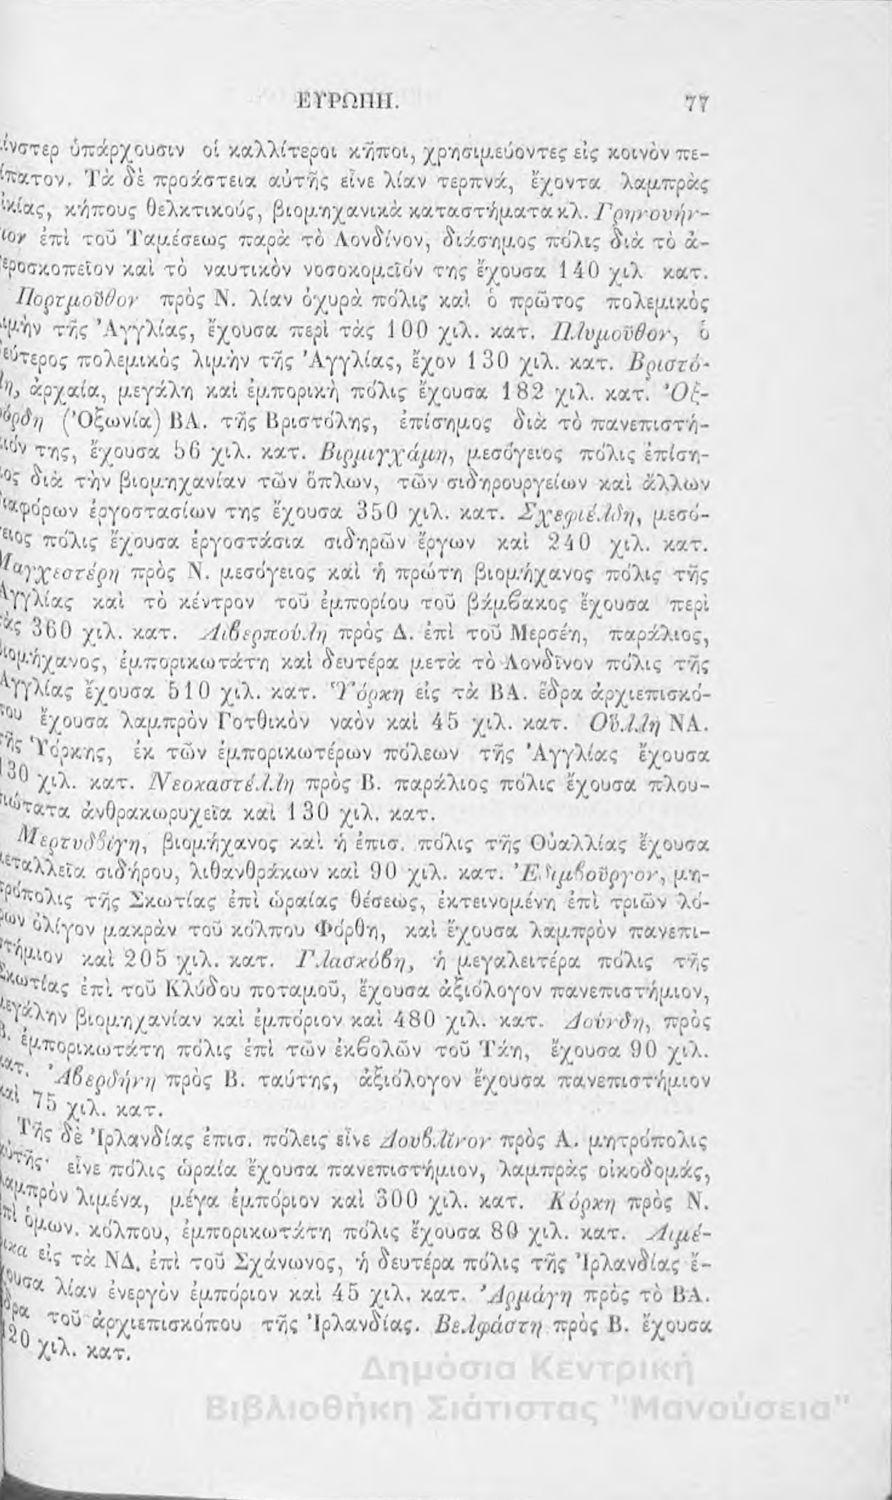 ΕΥΡΩΠΗ. 77
ίνστερ ὑπάρχουσιν οἱ καλλίτεροι κῆποι, χρησιμεύοντες εἰς κοινὸν πε-
ίπατον. Τὰ δὲ προάστεια αὐτῆς εἶνε λίαν τερπνά, ἔχοντα λαμπρὰς
ἰκίας, κήπους θελκτικούς, βιομηχανικὰ καταστήματα κλ. Γρηνουήν-
ιον ἐπὶ τοῦ Ταμέσεως παρὰ τὸ Λονδίνον, διάσημος πόλις διὰ τὸ ἀ-
εροσκοπεῖον καὶ τὸ ναυτικὸν νοσοκομεῖόν της ἔχουσα 140 χιλ κατ.
Πορτμοῦθον πρὸς Ν. λίαν ὀχυρὰ πόλις καὶ ὁ πρῶτος πολεμικὸς
ιμὴν τῆς Ἀγγλίας, ἔχουσα περὶ τὰς 100 χιλ. κατ. Πλυμοῦθον, ὁ
εύτερος πολεμικὸς λιμὴν τῆς Ἀγγλίας, ἔχον 130 χιλ. κατ. Βριστό-
λη, ἀρχαία, μεγάλη καὶ ἐμπορικὴ πόλις ἔχουσα 182 χιλ. κατ. Ὀξ-
όρδη (Ὀξωνία) ΒΑ. τῆς Βριστόλης, ἐπίσημος διὰ τὸ πανεπιστή-
ιόν της, ἔχουσα 56 χιλ. κατ. Βιρμιγχάμη, μεσόγειος πόλις ἐπίση-
ος διὰ τὴν βιομηχανίαν τῶν ὅπλων, τῶν σιδηρουργείων καὶ ἄλλων
ιαφόρων ἐργοστασίων της ἔχουσα 350 χιλ. κατ. Σχεφιέλδη, μεσό-
ειος πόλις ἔχουσα ἐργοστάσια σιδηρῶν ἔργων καὶ 240 χιλ. κατ.
Μαγχεστέρη πρὸς Ν. μεσόγειος καὶ ἡ πρώτη βιομήχανος πόλις τῆς
Ἀγγλίας καὶ τὸ κέντρον τοῦ ἐμπορίου τοῦ βάμβακος ἔχουσα περὶ
ὰς 360 χιλ. κατ. Λιβερπούλη πρὸς Δ. ἐπὶ τοῦ Μερσέη, παράλιος,
ιομήχανος, ἐμπορικωτάτη καὶ δευτέρα μετὰ τὸ Λονδῖνον πόλις τῆς
Ἀγγλίας ἔχουσα 510 χιλ. κατ. Ὑόρκη εἰς τὰ ΒΑ. ἕδρα ἀρχιεπισκό-
που ἔχουσα λαμπρὸν Γοτθικὸν ναὸν καὶ 45 χιλ. κατ. Οὔλλη ΝΑ.
τῆς Ὑόρκης, ἐκ τῶν ἐμπορικωτέρων πόλεων τῆς Ἀγγλίας ἔχουσα
130 χιλ. κατ. Νεοκαστέλλη πρὸς Β. παράλιος πόλις ἔχουσα πλου-
ιώτατα ἀνθρακωρυχεῖα καὶ 130 χιλ. κατ.
Μερτυδβίγη, βιομήχανος καὶ ἡ ἐπισ. πόλις τῆς Οὐαλλίας ἔχουσα
εταλλεῖα σιδήρου, λιθανθράκων καὶ 90 χιλ. κατ. Ἐδιμβοῦργον, μη-
ρόπολις τῆς Σκωτίας ἐπὶ ὡραίας θέσεως, ἐκτεινομένη ἐπὶ τριῶν λό-
ων ὀλίγον μακρὰν τοῦ κόλπου Φόρθη, καὶ ἔχουσα λαμπρὸν πανεπι-
τήμιον καὶ 205 χιλ. κατ. Γλασκόβη, ἡ μεγαλειτέρα πόλις τῆς
Σκωτίας ἐπὶ τοῦ Κλύδου ποταμοῦ, ἔχουσα ἀξιόλογον πανεπιστήμιον,
εγάλην βιομηχανίαν καὶ ἐμπόριον καὶ 480 χιλ. κατ. Δούνδη, πρὸς
Β. ἐμπορικωτάτη πόλις ἐπὶ τῶν ἐκβολῶν τοῦ Τάη, ἔχουσα 90 χιλ.
ατ. Ἀβερδήνη πρὸς Β. ταύτης, ἀξιόλογον ἔχουσα πανεπιστήμιον
αὶ 75 χιλ. κατ.
Τῆς δὲ Ἰρλανδίας ἐπισ. πόλεις εἶνε Δουβλῖνον πρὸς Α. μητρόπολις
ὐτῆς· εἶνε πόλις ὡραία ἔχουσα πανεπιστήμιον, λαμπρὰς οἰκοδομάς,
αμπρὸν λιμένα, μέγα ἐμπόριον καὶ 300 χιλ. κατ. Κόρκη πρὸς Ν.
πὶ ὁμων. κόλπου, ἐμπορικωτάτη πόλις ἔχουσα 80 χιλ. κατ. Λιμέ-
ικα εἰς τὰ ΝΔ. ἐπὶ τοῦ Σχάνωνος, ἡ δευτέρα πόλις τῆς Ἰρλανδίας ἔ-
ουσα λίαν ἐνεργὸν ἐμπόριον καὶ 45 χιλ. κατ. Ἀρμάγη πρὸς τὸ ΒΑ.
δρα τοῦ ἀρχιεπισκόπου τῆς Ἰρλανδίας. Βελφάστη πρὸς Β. ἔχουσα
120 χιλ. κατ.
Δημόσια Κεντρική
Βιβλιοθήκη Σιάτιστας "Μανούσεια"